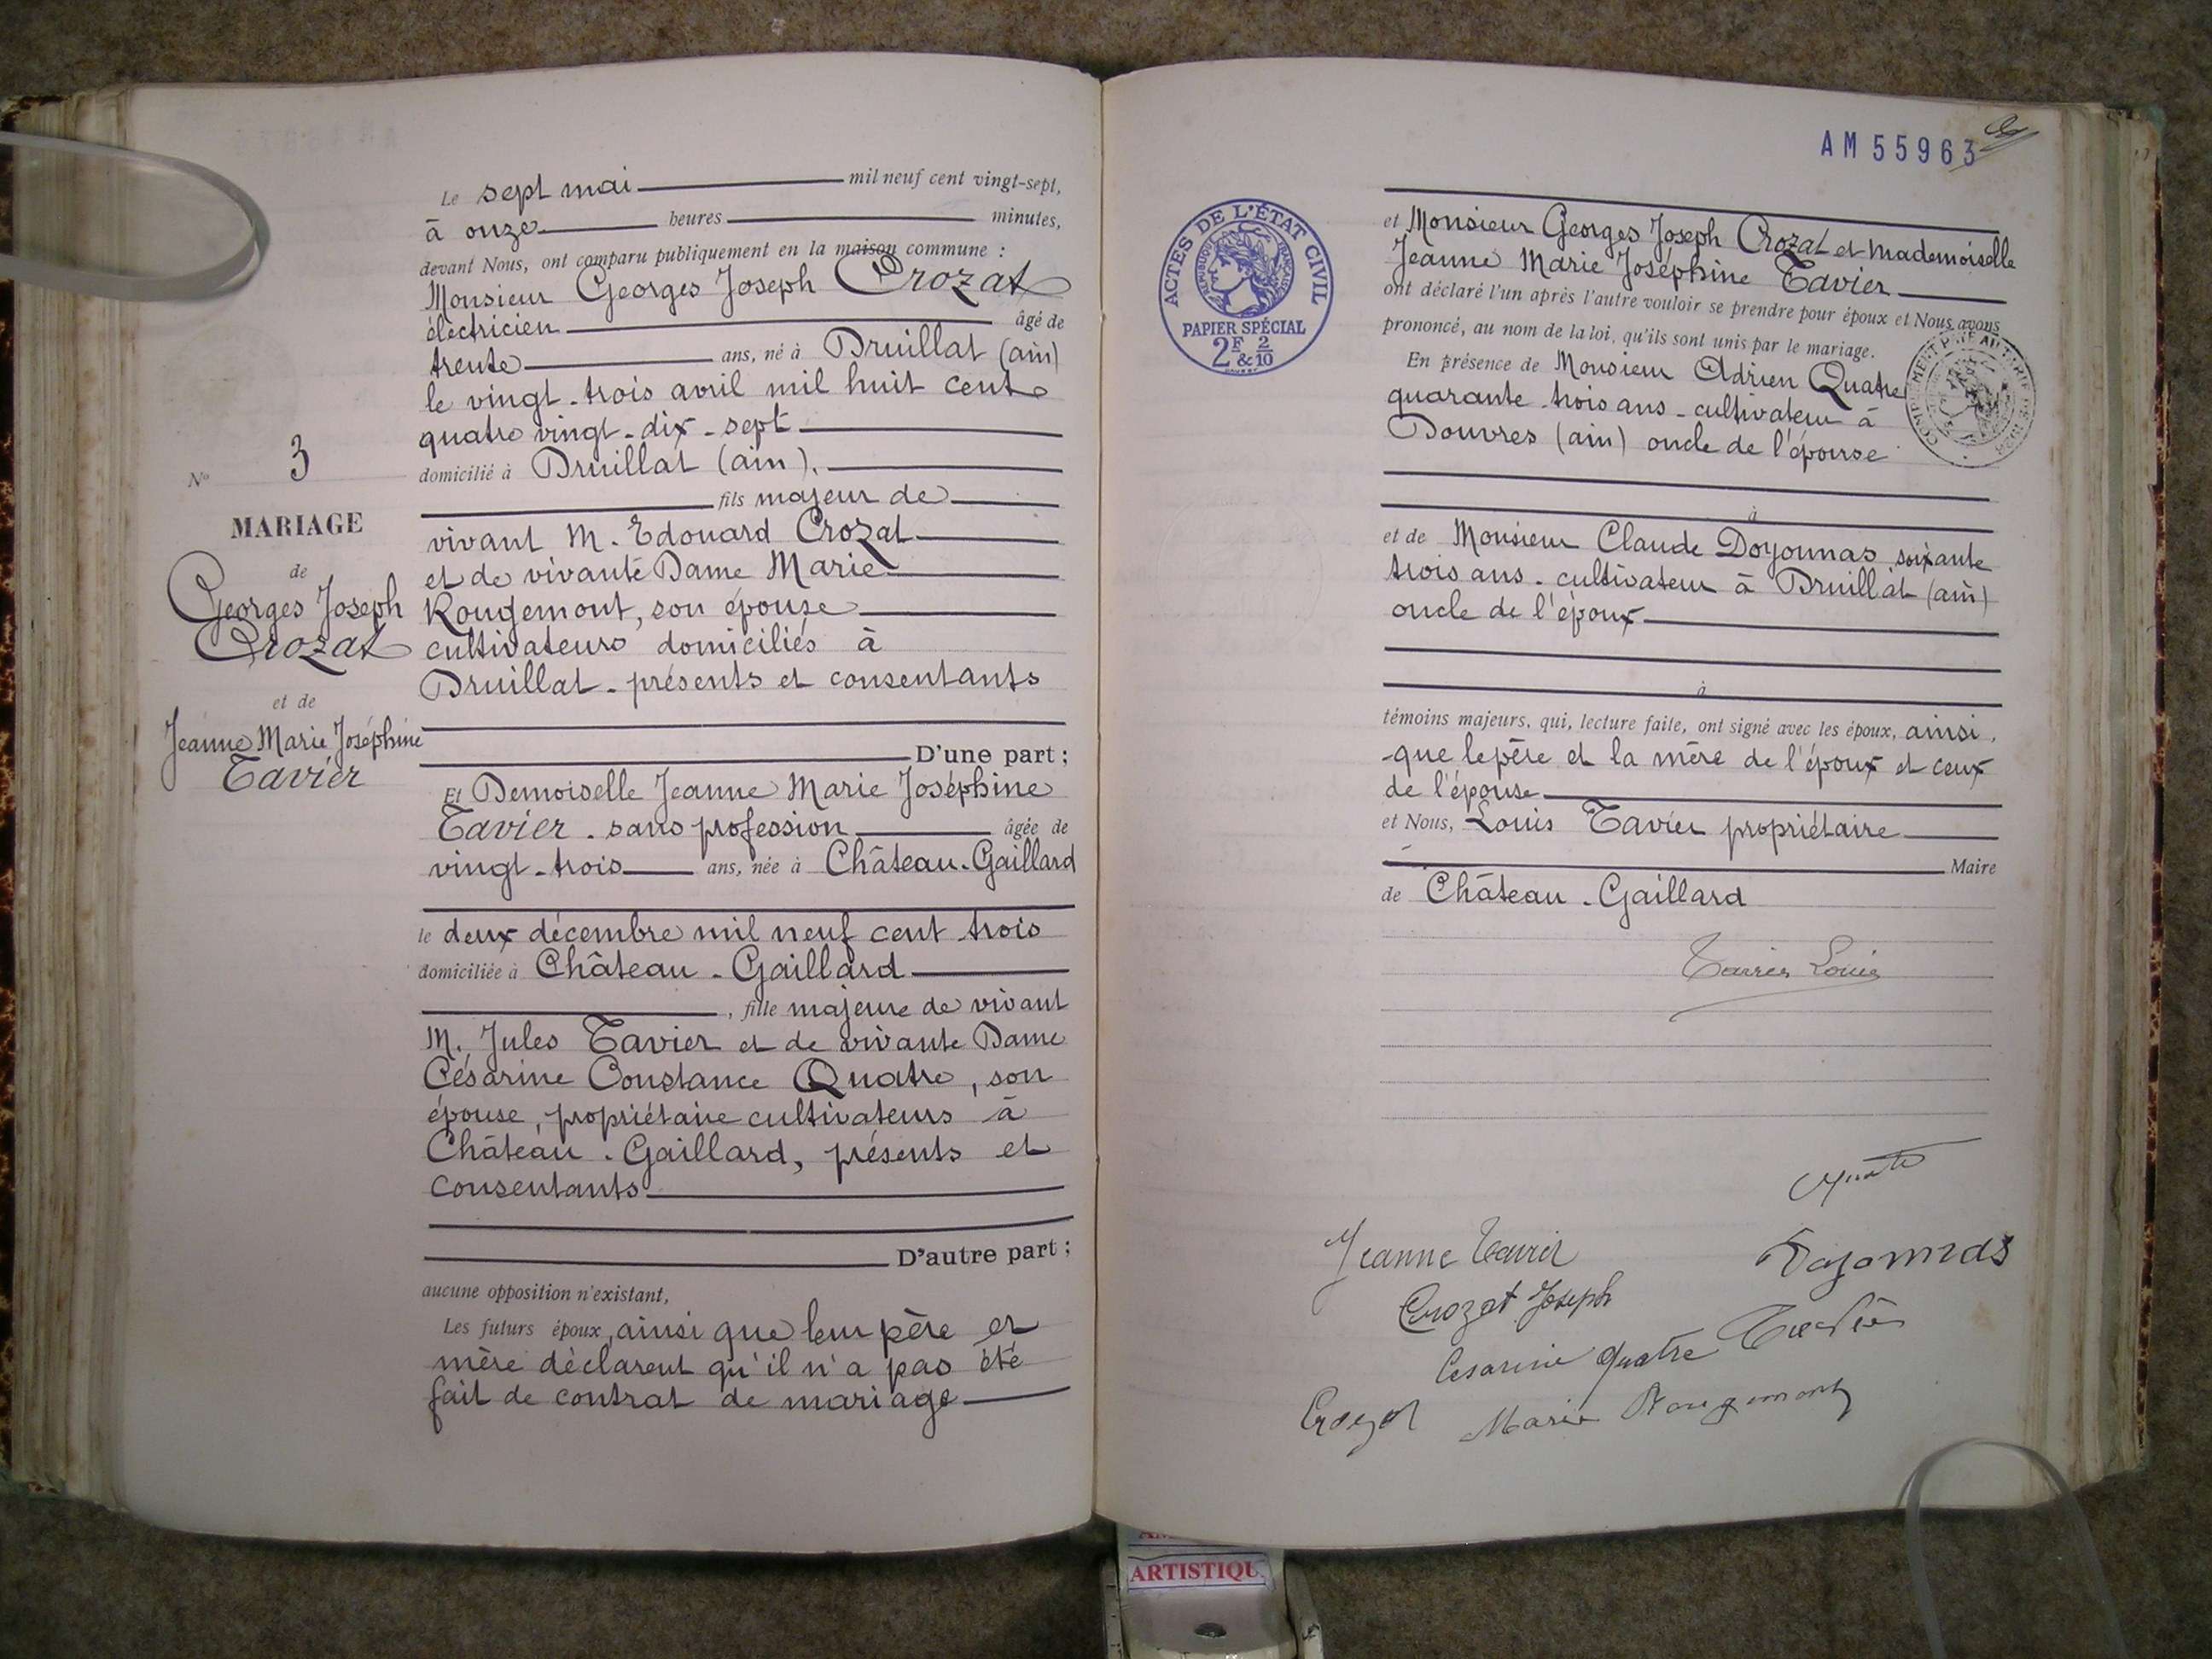 Le sept mai mil neuf cent vingt-sept,
à onze heures minutes,
devant Nous, ont comparu publiquement en la maison commune :
Monsieur Georges Joseph Crozat
électricien âgé de
trente ans, né à Druillat (ain)
le vingt-trois avril mil huit cent
quatre vingt-dix-sept
domicilié à Druillat (ain).
fils majeur de
vivant M. Edouard Crozat
et de vivante Dame Marie
Rougemont, son épouse
cultivateurs domiciliés à
Druillat - présents et consentants
D'une part ;
Et Demoiselle Jeanne Marie Joséphine
Tavier - sans profession âgée de
vingt-trois ans, née à Château-Gaillard
le deux décembre mil neuf cent trois
domiciliée à Château-Gaillard
, fille majeure de vivant
M. Jules Tavier et de vivante Dame
Césarine Constance Quatre, son
épouse, propriétaire cultivateurs à
Château-Gaillard, présents et
consentants
D'autre part ;
aucune opposition n'existant,
Les futurs époux, ainsi que leur père et
mère déclarent qu'il n'a pas été
fait de contrat de mariage
No 3
MARIAGE
de
Georges Joseph
Crozat
et de
Jeanne Marie Joséphine
Tavier
AM 55963
ACTES DE L'ÉTAT CIVIL
RÉPUBLIQUE FRANÇAISE
PAPIER SPÉCIAL
2F & 2/10
et Monsieur Georges Joseph Crozat et mademoiselle
Jeanne Marie Joséphine Tavier
ont déclaré l'un après l'autre vouloir se prendre pour époux et Nous avons
prononcé, au nom de la loi, qu'ils sont unis par le mariage.
En présence de Monsieur Adrien Quatre
quarante-trois ans - cultivateur à
Douvres (ain) oncle de l'épouse
à
et de Monsieur Claude Doyonnas soixante
trois ans - cultivateur à Druillat (ain)
oncle de l'époux
à
témoins majeurs, qui, lecture faite, ont signé avec les époux, ainsi
que le père et la mère de l'époux et ceux
de l'épouse
et Nous, Louis Tavier propriétaire
Maire
de Château-Gaillard
Tavier Louis
Quatre
Jeanne Tavier
Doyonnas
Crozat Joseph
Tavier
Cesarine Quatre
Crozat
Marie Rougemont
ARTISTIQU